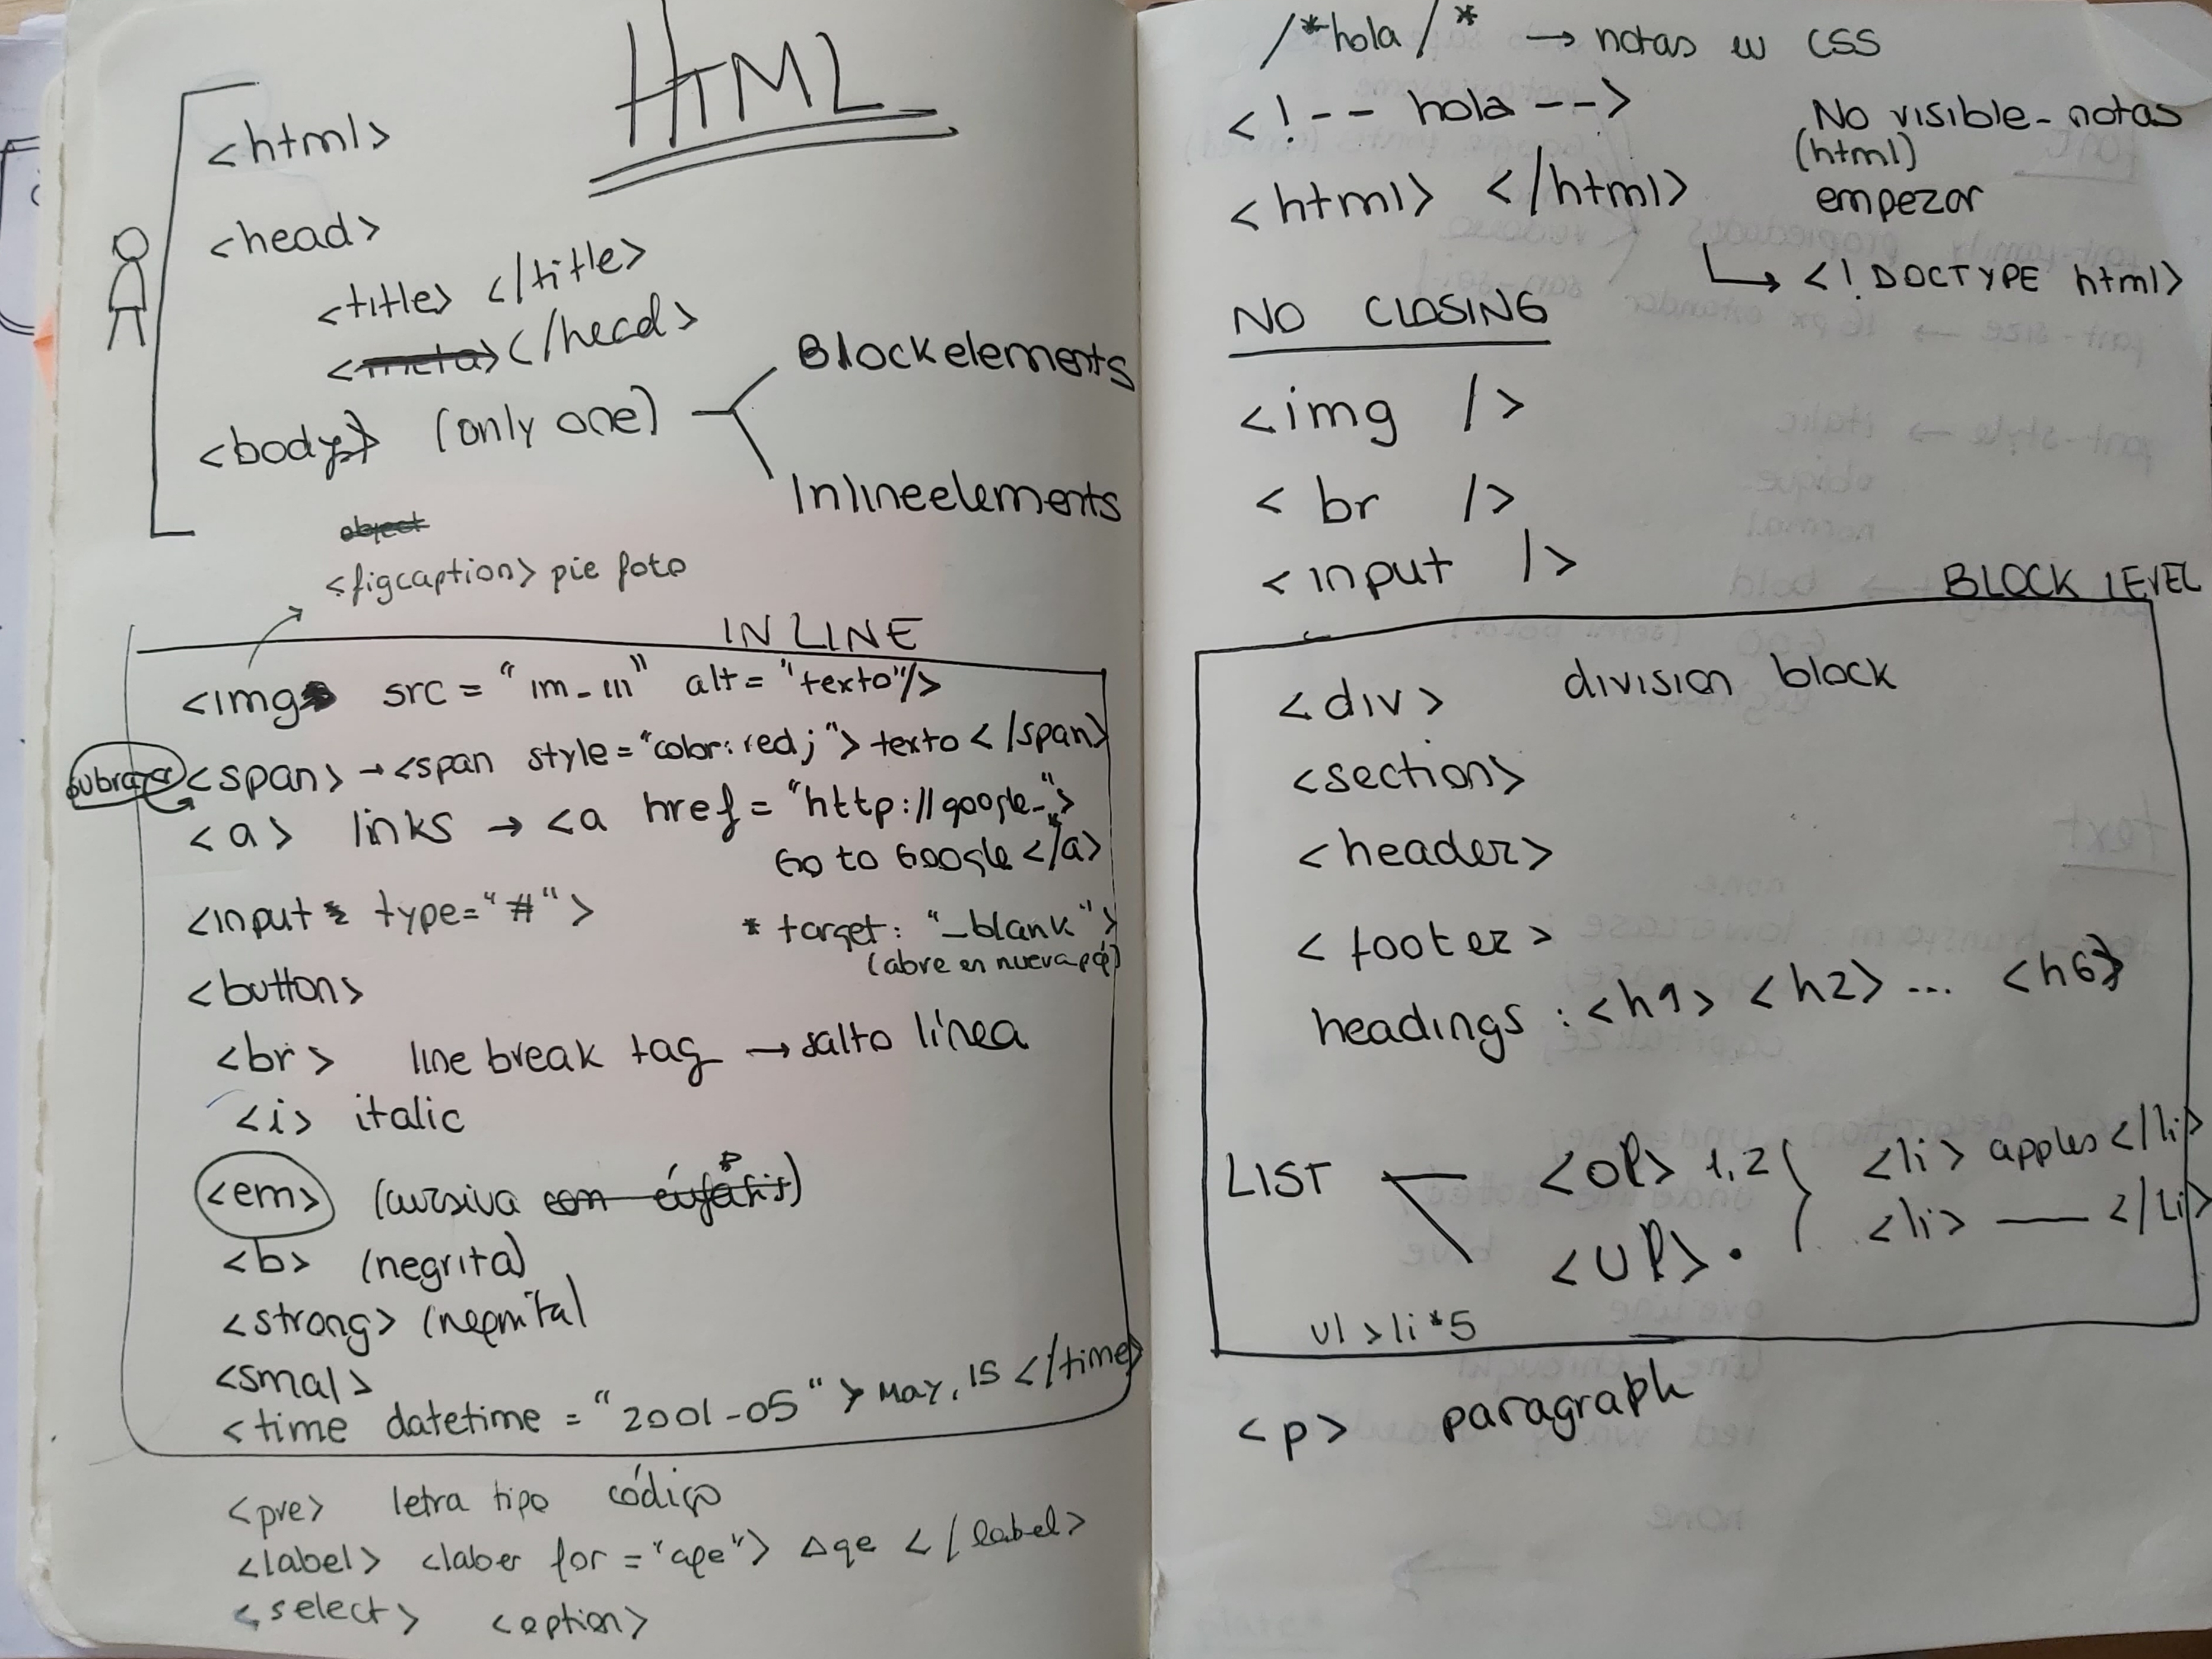 HTML
<html>
<head>
<title> </title>
</head>
<body> (only one)
Block elements
Inline elements
object
<figcaption> pie foto
INLINE
<img src = "im_m" alt = "texto"/>
<span> → <span style = "color: red;"> texto </span>
<a> links → <a href = "http://google_">
Go to Google </a>
<input type="#">
* target: "_blank">
(abre en nueva pág)
<button>
<br> line break tag → salto línea
<i> italic
<em> (cursiva con énfasis)
<b> (negrita)
<strong> (negrita)
<smal>
<time datetime = "2001-05"> May, 15 </time>
<pre> letra tipo código
<label> <laber for = "age"> Age </label>
<select> <option>
/*hola/* → notas en CSS
<!-- hola --> No visible-notas
(html)
<html> </html> empezar
↳ <!DOCTYPE html>
NO CLOSING
<img />
<br />
<input />
BLOCK LEVEL
<div> division block
<section>
<header>
<footer>
headings: <h1> <h2> ... <h6>
LIST <ol> 1,2 <li> apples </li>
<ul> • <li> —— </li>
ul>li*5
<p> paragraph